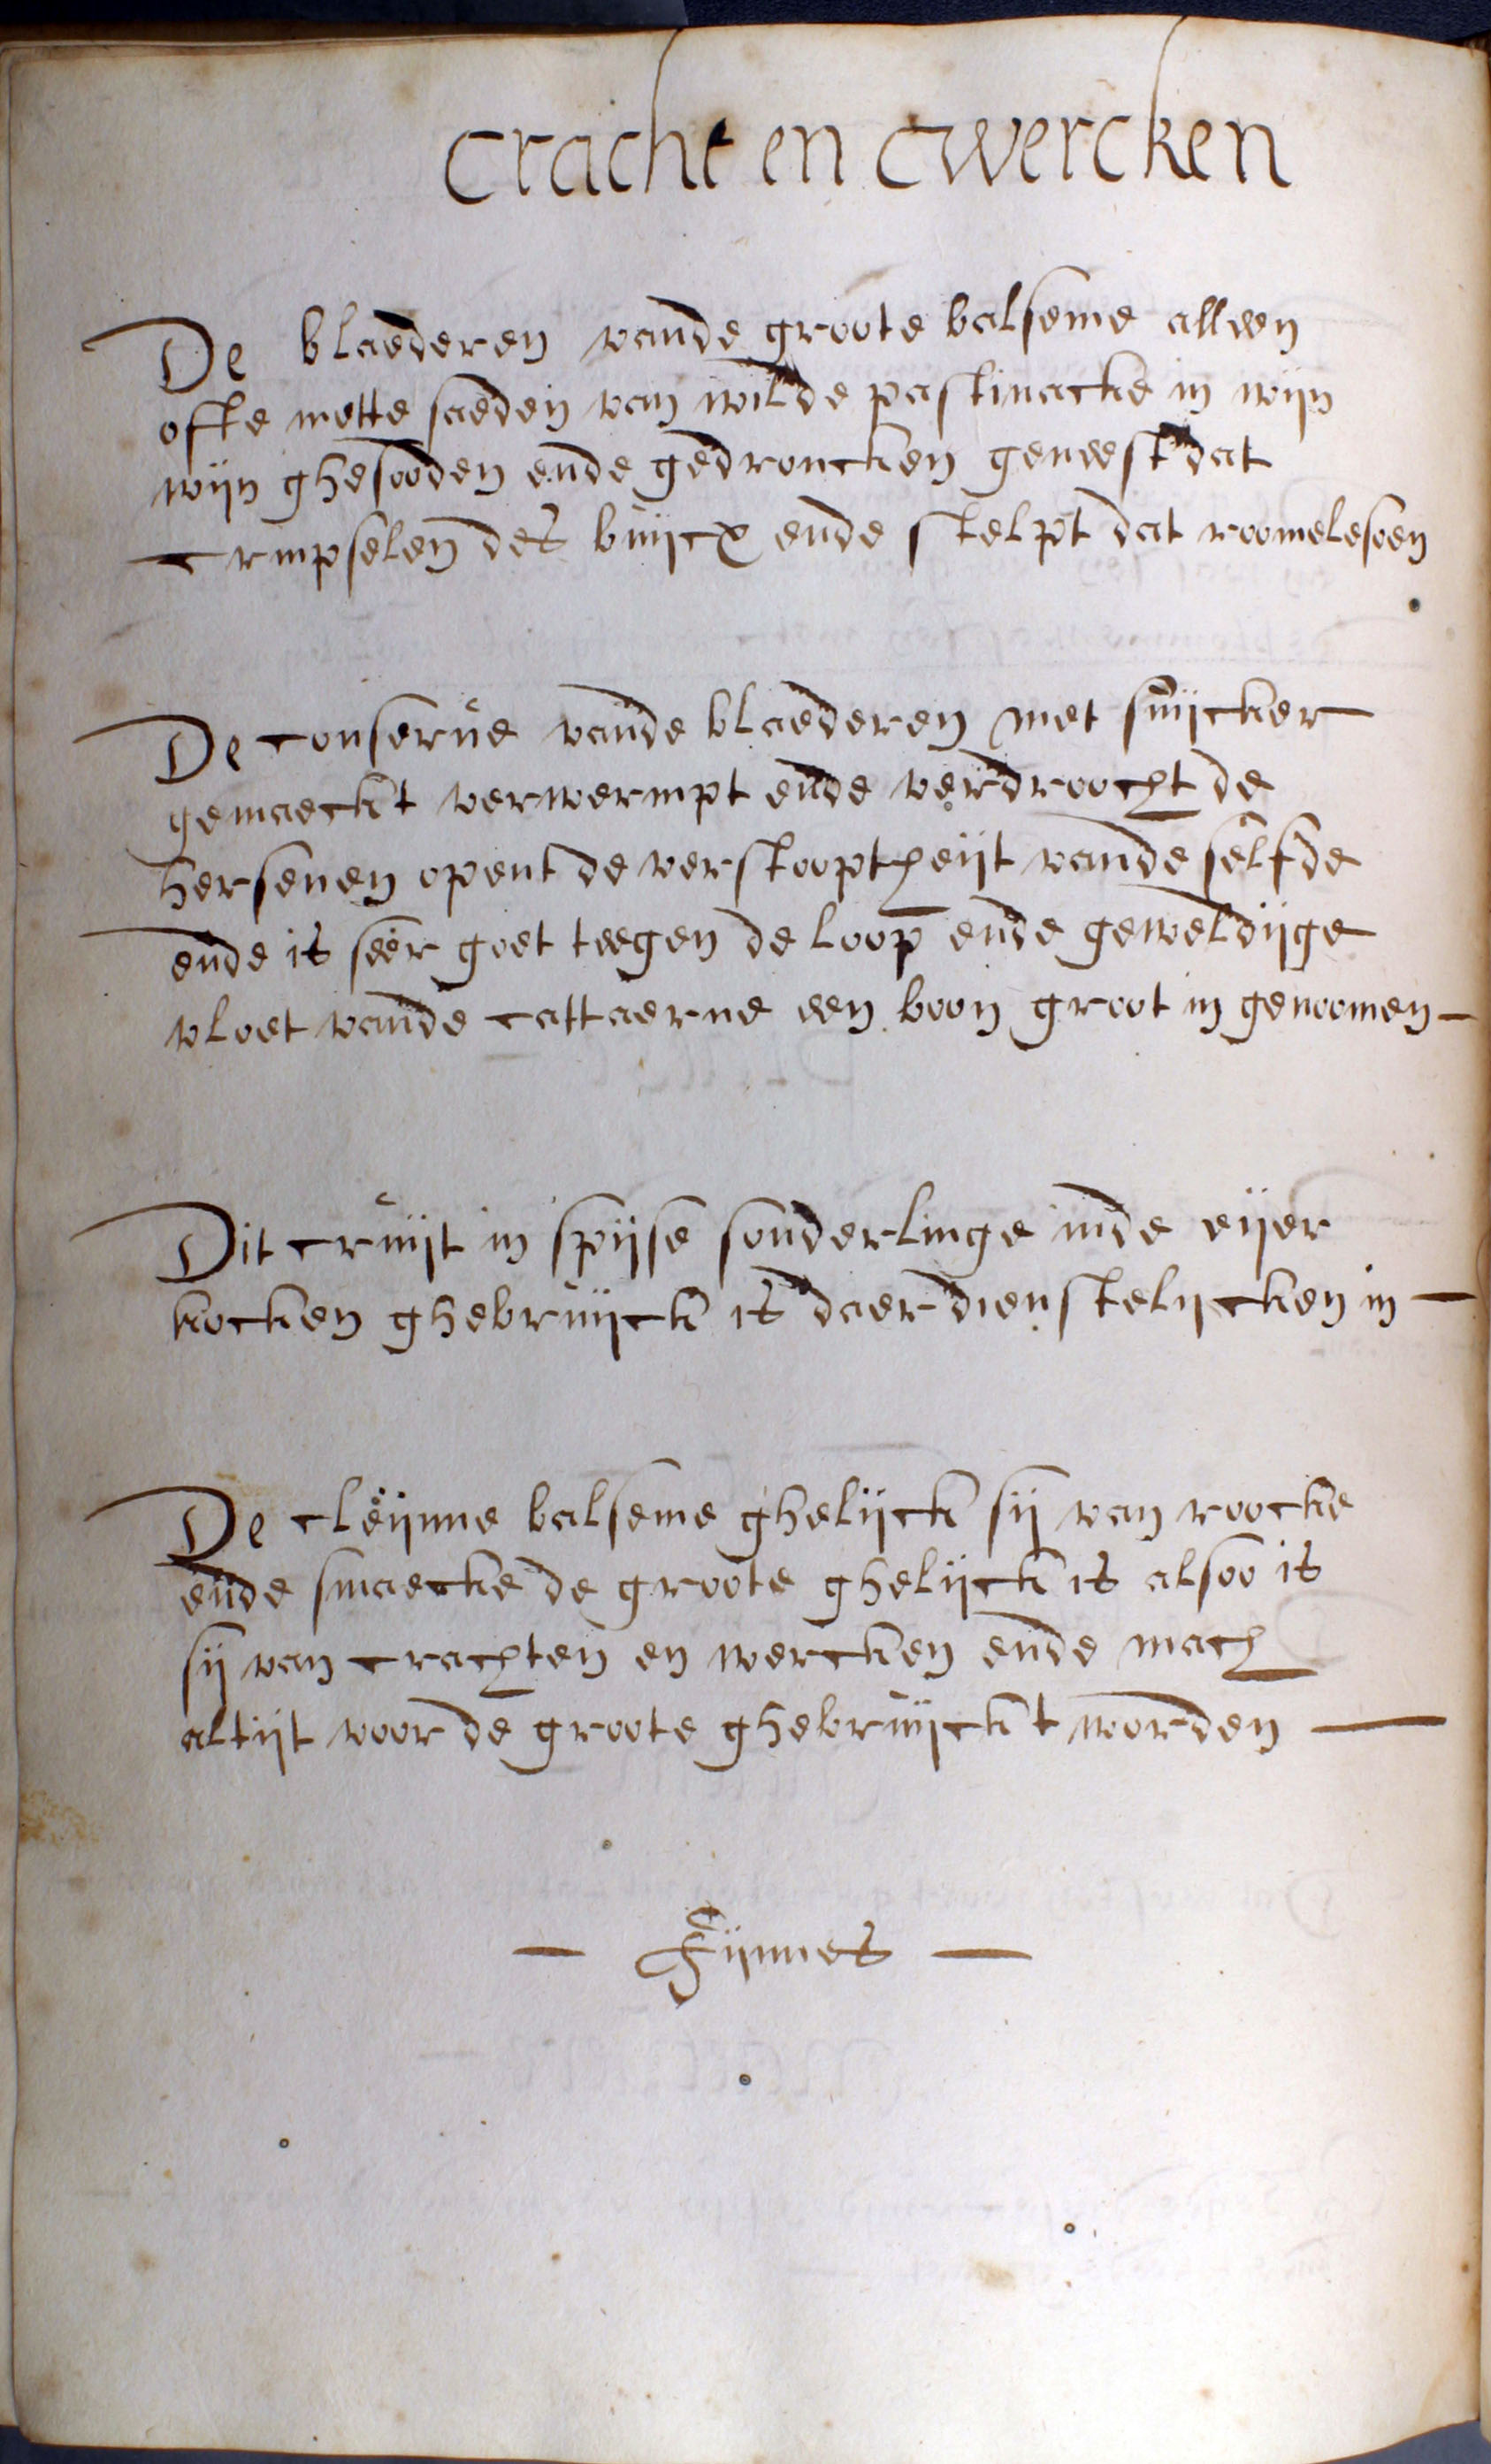 cracht en cwercken
De blaederen vande groote balseme alleen
ofte mette saeden van wilde pastinacke in wijn
wijn ghesooden ende gedroncken geneest dat
crimpselen des buijcx ende stelpt dat roomelesoen
De conserve vande blaederen met suijcker
gemaeckt verwermpt ende verdroocht de
hersenen opent de verstooptheijt vande selfde
ende is seer goet teegen de loop ende geweldijge
vloet vande cattaerne een boon groot in genoomen —
Dit cruijt in spijse sonderlinge inde eijer
kocken ghebruijck is daer dienstelijcken in —
De cleijnne balseme ghelijck sij van roocke
ende smaecke de groote ghelijck is alsoo is
sij van crachten en wercken ende mach
altijt voor de groote ghebruijckt worden —
— Fijnnes —